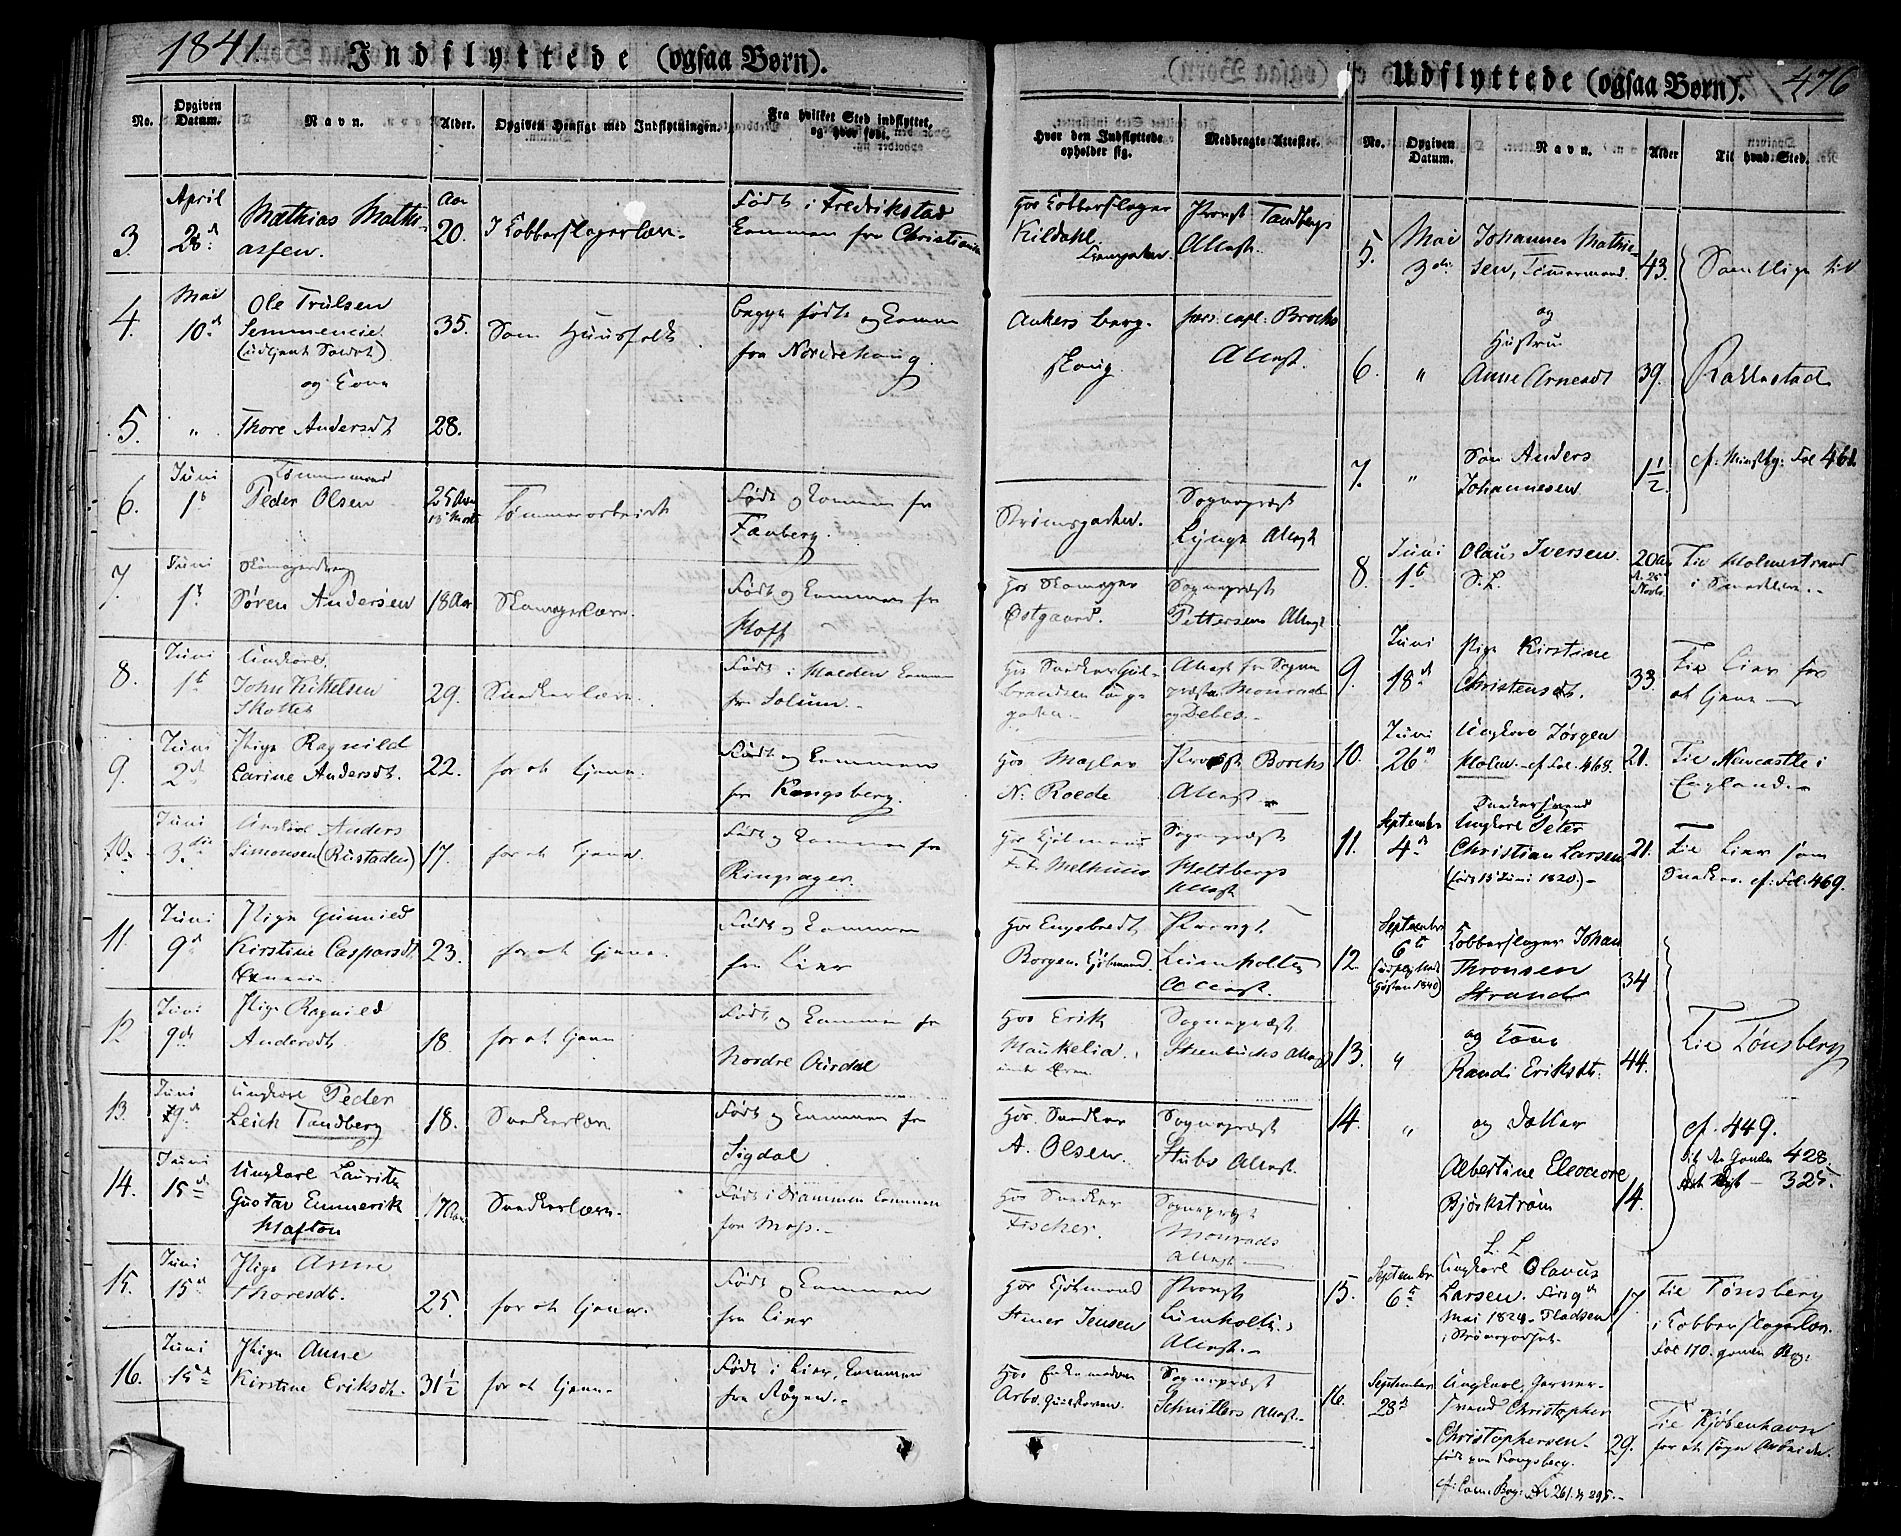 1841 Indflyttede (ogsaa Børn).
No.
Opgiven Datum.
Navn.
Alder.
Opgiven Hensigt med Indflytningen.
Fra hvilket Sted indflyttet, og hvor født.
Hvor den Indflyttede opholder sig.
Medbragte Attester.
3.
April 28d
Mathias Mathiassen.
Aar 20.
I Kobberslagerlære.
Født i Fredrikstad
kommen fra Christiania
Hos Kobberslager
Kildahl
Provst Tandbergs
Attest.
4.
Mai 10d
Ole Trulsen
Semmencie
(udtjent Soldat)
og Kone
35.
Som Huusfolk
begge født og komne
fra Norderhoug.
Ankers berg.
skoug.
pers: cap: Brochs
Attest.
5.
"
Thore Andersdt
28.
6.
Juni 1ste
Tømmermand
Peder Olsen
25 Aar
Tømmerarbeide
Født og kommen fra
Faaberg.
Strømsgaden.
Sognepræst
Lynge Attest
7.
Juni 1ste
Skomagerdreng
Søren Andersen
18 Aar
Skomagerlære.
Født og kommen fra
Hoff
Hos Skomager
Østgaard.
Sognepræst
Pettersens Attest
8.
Juni 1ste
Ungkarl
John Kittelsen
Skotte
29.
Snedkerlære.
Født i Halden kommen
fra Solum.
Hos Snedker Gulbrandsen
Attest fra Sognepræsterne Monrad
og Debes.
9.
Juni 2d
Pige Ragnild
Carine Andersdt.
22.
for at tjene.
Født og kommen
fra Kongsberg.
Hos Mægler
N. Roede
Provst Borchs
Attest.
10.
Juni 3die
Ungkarl Anders
Simonsen (Rustaden)
17.
for at tjene.
Født og kommen fra
Ringsager.
Hos Kjøbmand
Fr. Melhuus
Sognepræst
Heltbergs
Attest
11.
Juni 9d
Pige Gunnild
Kirstine Caspersdt
23.
for at tjene.
Født og kommen
fra Lier
Hos Engebredt
Borgen. Kjøbmand.
Provst
Lumholtz
Attest.
12
Juni 9de
Pige Ragnild
Andersdt.
18.
for at tjene
Født og kommen fra
Nordre Aurdal
Hos Erik
Maukelia.
Sognepræst
Steenbuchs Attest
13.
Juni 9d
Ungkarl Peder
Leich Tandberg
18.
Snedkerlære
Født og kommen fra
Sigdal
Hos Snedker
A. Olsen.
Sognepræst
Stubs Attest.
14.
Juni 15de
Ungkarl Lauritz
Gustav Emmerik
Hafton
17 Aar
Snedkerlære.
Født i Drammen kommen
fra Moss.
Hos Snedker
Fischer.
Sognepræst
Monrads
Attest.
15.
Juni 15d
Pige Anne
Thoresdt.
25.
for at tjene.
Født og kommen
fra Lier
Hos Kjøbmand
Jensen
Provst
Lumholtz
Attest.
16.
Juni 15d
Pige Anne
Kirstine Eriksdt.
31½
for at tjene
Født i Lier, kommen
fra Røgen.
Hos Enkemadam
Arbo
Sognepræst
Schnitlers Attest.
Udflyttede (ogsaa Børn). 476
No.
Opgiven Datum.
Navn.
Alder
Til hvad Sted.
5.
Mai 3die
Johannes Mathiesen, Tømmermand.
43.
Samtlige til
og
6.
"
Hustru
Anne Arnesdt
39.
Rakkestad.
7.
"
Søn Anders
Johannesen
1½
cf: Ministbg: Fol 461
8.
Juni 1ste
Olaus Iversen.
S. L.
20 Aar
Til Holmestrand
i Snedkerlære.
9.
Juni 18de
Pige Kirstine
Christensdt.
33.
Til Lier for
at tjene
10.
Juni 26de
Ungkarl Jørgen
Holm. cf Fol. 468.
21.
Til Newcastle i
England.
11.
September 4de
Snedkersvend
Ungkarl Peter
Christian Larsen
(født 13 Juni 1820.)
21.
Til Lier som
Snedker. cf: Fol. 469.
12.
September 6te
(udflyttede Høsten 1840)
Kobberslager Johan
Thronsen
Strand
34
13.
"
og Kone
Randi Eriksdt.
44.
Til Tønsberg
14.
"
og Datter
Albertine Eleonore
Bjørkstrøm
14.
cf. 449.
428.
325.
15.
September 6te
S. L.
Ungkarl Olavus
Larsen. Født 9de
Mai 1824. Fladsen
i Strømsgodset.
17.
Til Tønsberg
i Kobberslagerlære.
Fol 170. gamle Reg:
16.
September 28de
Ungkarl, Garversvend Christopher
Christophersen.
født paa Kongsberg.
29.
Til Kjøbenhavn
for at søge Arbeide.
cf: Com. Bog: Fol 261.